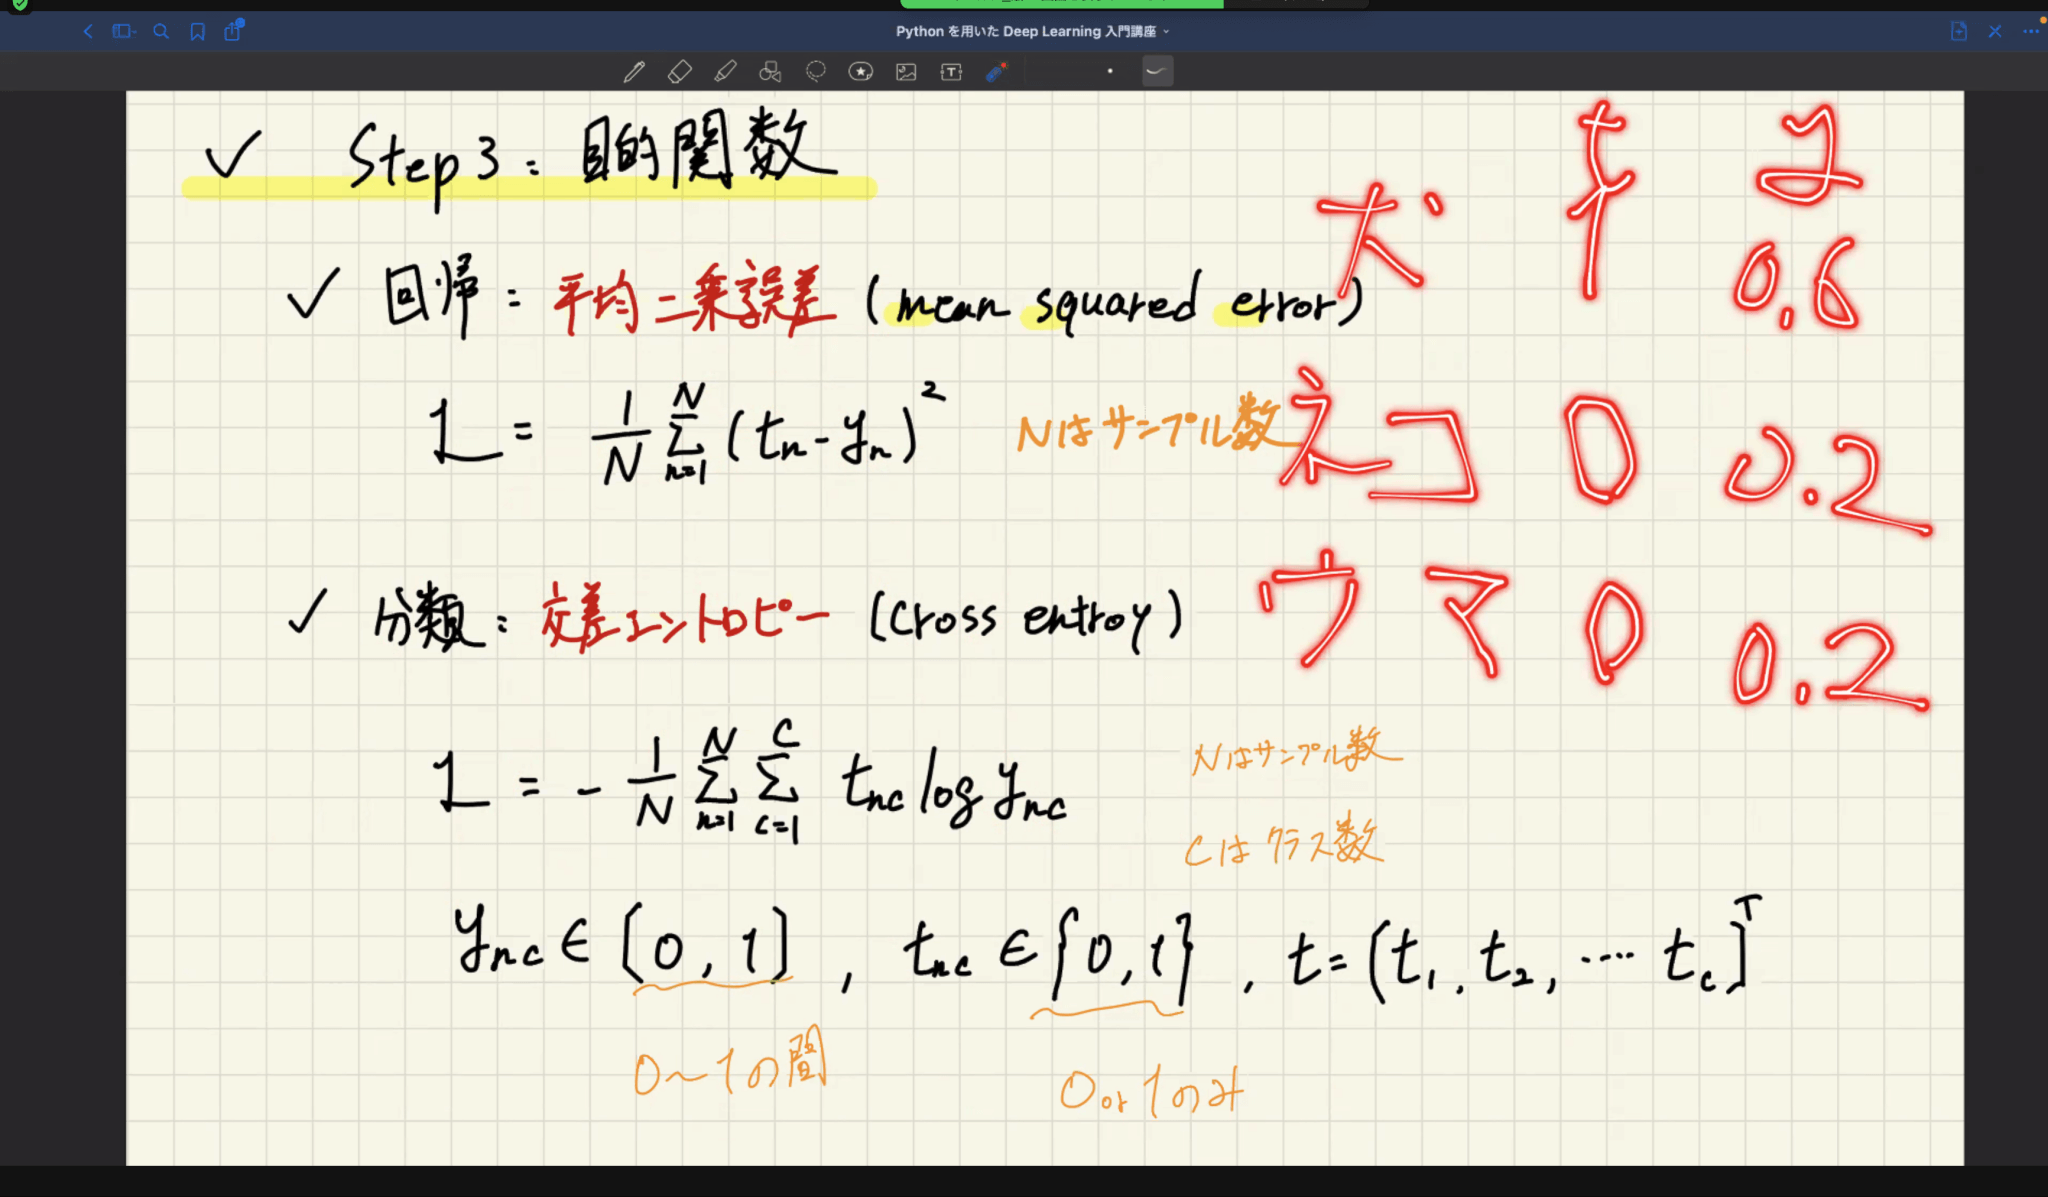 Python を用いた Deep Learning 入門講座
✓ Step 3 : 目的関数
✓ 回帰 : 平均二乗誤差 (mean squared error)
L = 1/N Σ_{n=1}^{N} (t_n - y_n)^2
Nはサンプル数
✓ 分類 : 交差エントロピー (cross entroy)
L = - 1/N Σ_{n=1}^{N} Σ_{c=1}^{C} t_nc log y_nc
Nはサンプル数
Cはクラス数
y_nc ∈ [0, 1], t_nc ∈ {0, 1}, t = [t_1, t_2, ···· t_c]^T
0~1の間
0 or 1のみ
y
0.6
ネコ 0 0.2
ウマ 0 0.2